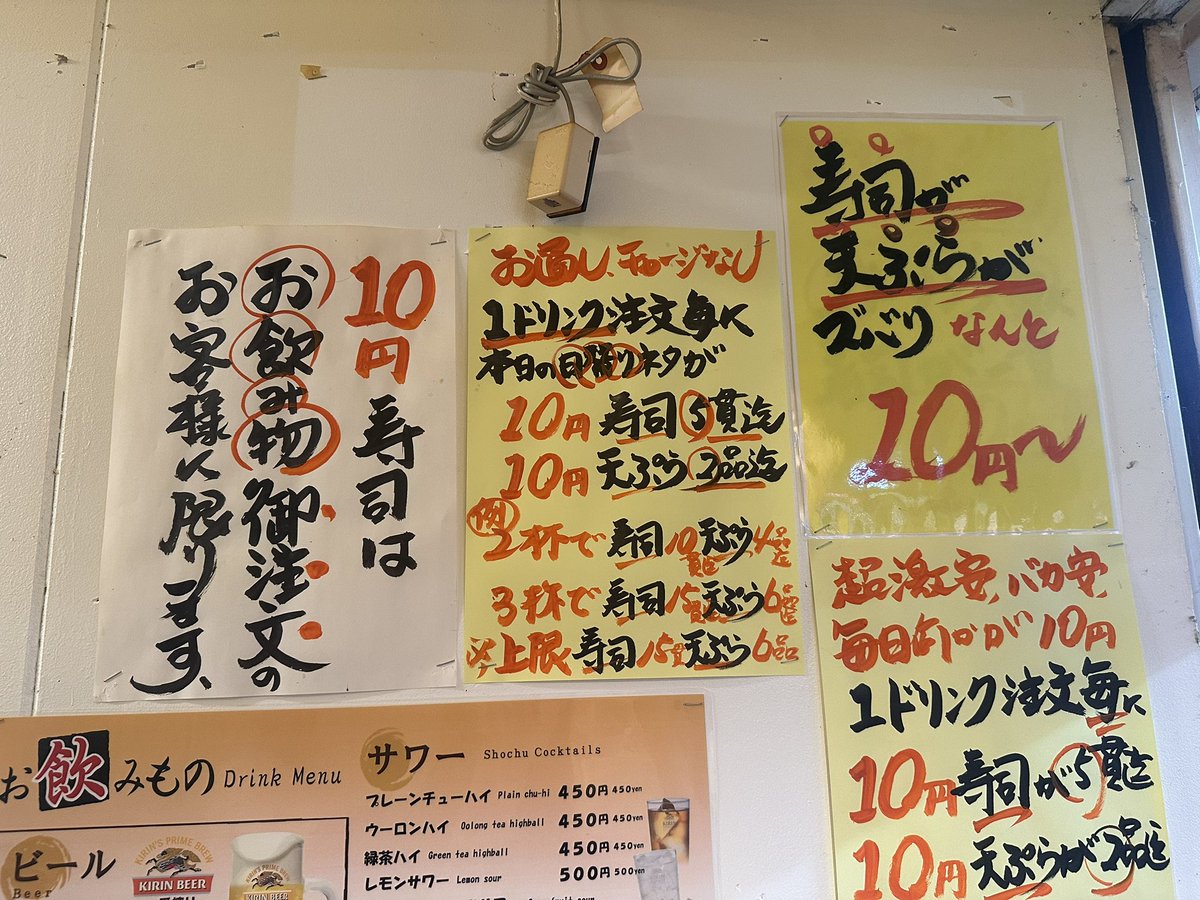 10円寿司は
お飲み物御注文の
お客様に限ります、
お通し、チャージなし
1ドリンク注文毎に
本日の日替りネタが
10円寿司5貫迄
10円天ぷら2品迄
例
2杯で寿司10貫天ぷら4品
3杯で寿司15貫天ぷら6品
上限寿司15貫天ぷら6品
寿司が
天ぷらが
ズバリなんと
10円〜
超激安、バカ安、
毎日何かが10円
1ドリンク注文毎に
10円寿司が5貫迄
10円天ぷらが2品迄
お飲みもの Drink Menu
ビール
Beer
KIRIN'S PRIME BREW
KIRIN BEER
サワー Shochu Cocktails
プレーンチューハイ Plain chu-hi 450円 450yen
ウーロンハイ Oolong tea highball 450円 450yen
緑茶ハイ Green tea highball 450円 450yen
レモンサワー Lemon sour 500円 500yen